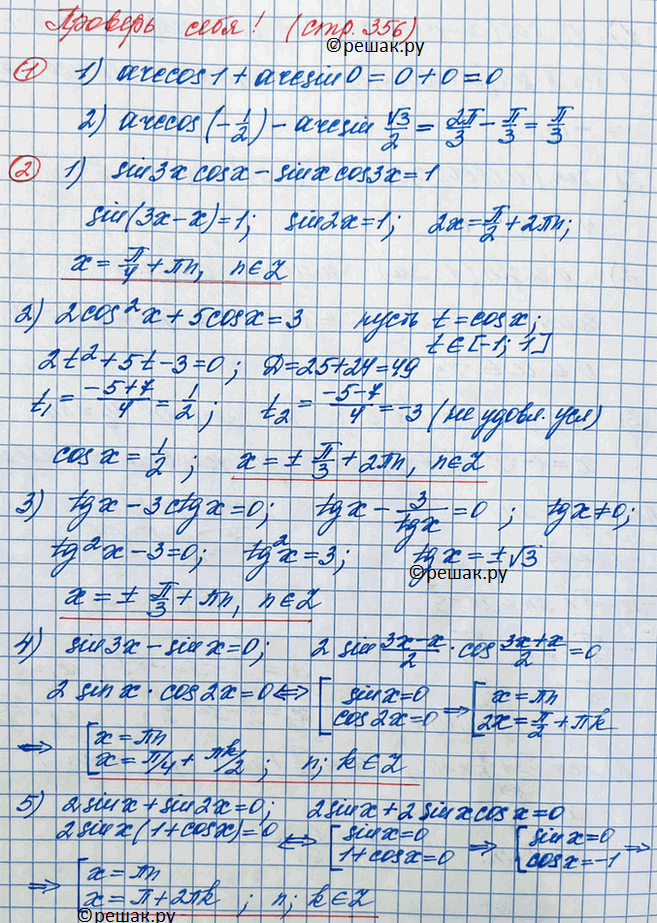 Проверь себя! (стр. 356)
©решак.ру
① 1) arccos1 + arcsin0 = 0 + 0 = 0
2) arccos(-1/2) - arcsin √3/2 = 2π/3 - π/3 = π/3
② 1) sin3x cosx - sinx cos3x = 1
sin(3x-x)=1; sin2x=1; 2x=π/2+2πn;
x = π/4 + πn, n∈Z
2) 2cos²x + 5cosx = 3 пусть t = cosx;
t∈[-1; 1]
2t²+5t-3=0; D=25+24=49
t₁ = (-5+7)/4 = 1/2; t₂ = (-5-7)/4 = -3 (не удовл. усл)
cosx = 1/2; x = ± π/3 + 2πn, n∈Z
3) tgx - 3ctgx = 0; tgx - 3/tgx = 0; tgx≠0;
tg²x - 3=0; tg²x = 3; tgx = ±√3
©решак.ру
x = ± π/3 + πn, n∈Z
4) sin3x - sinx = 0; 2 sin (3x-x)/2 · cos (3x+x)/2 = 0
2 sinx · cos2x = 0 ⟺ [ sinx=0 ⇒ [ x = πn
cos2x=0 2x = π/2 + πk
⇒ [ x = πn
x = π/4 + πk/2 ; n; k∈Z
5) 2sinx + sin2x = 0; 2sinx + 2sinxcosx = 0
2sinx(1+cosx)=0 ⟺ [ sinx=0 ⇒ [ sinx=0 ⇒
1+cosx=0 cosx=-1
⇒ [ x = πn
x = π+2πk ; n; k∈Z
©решак.ру